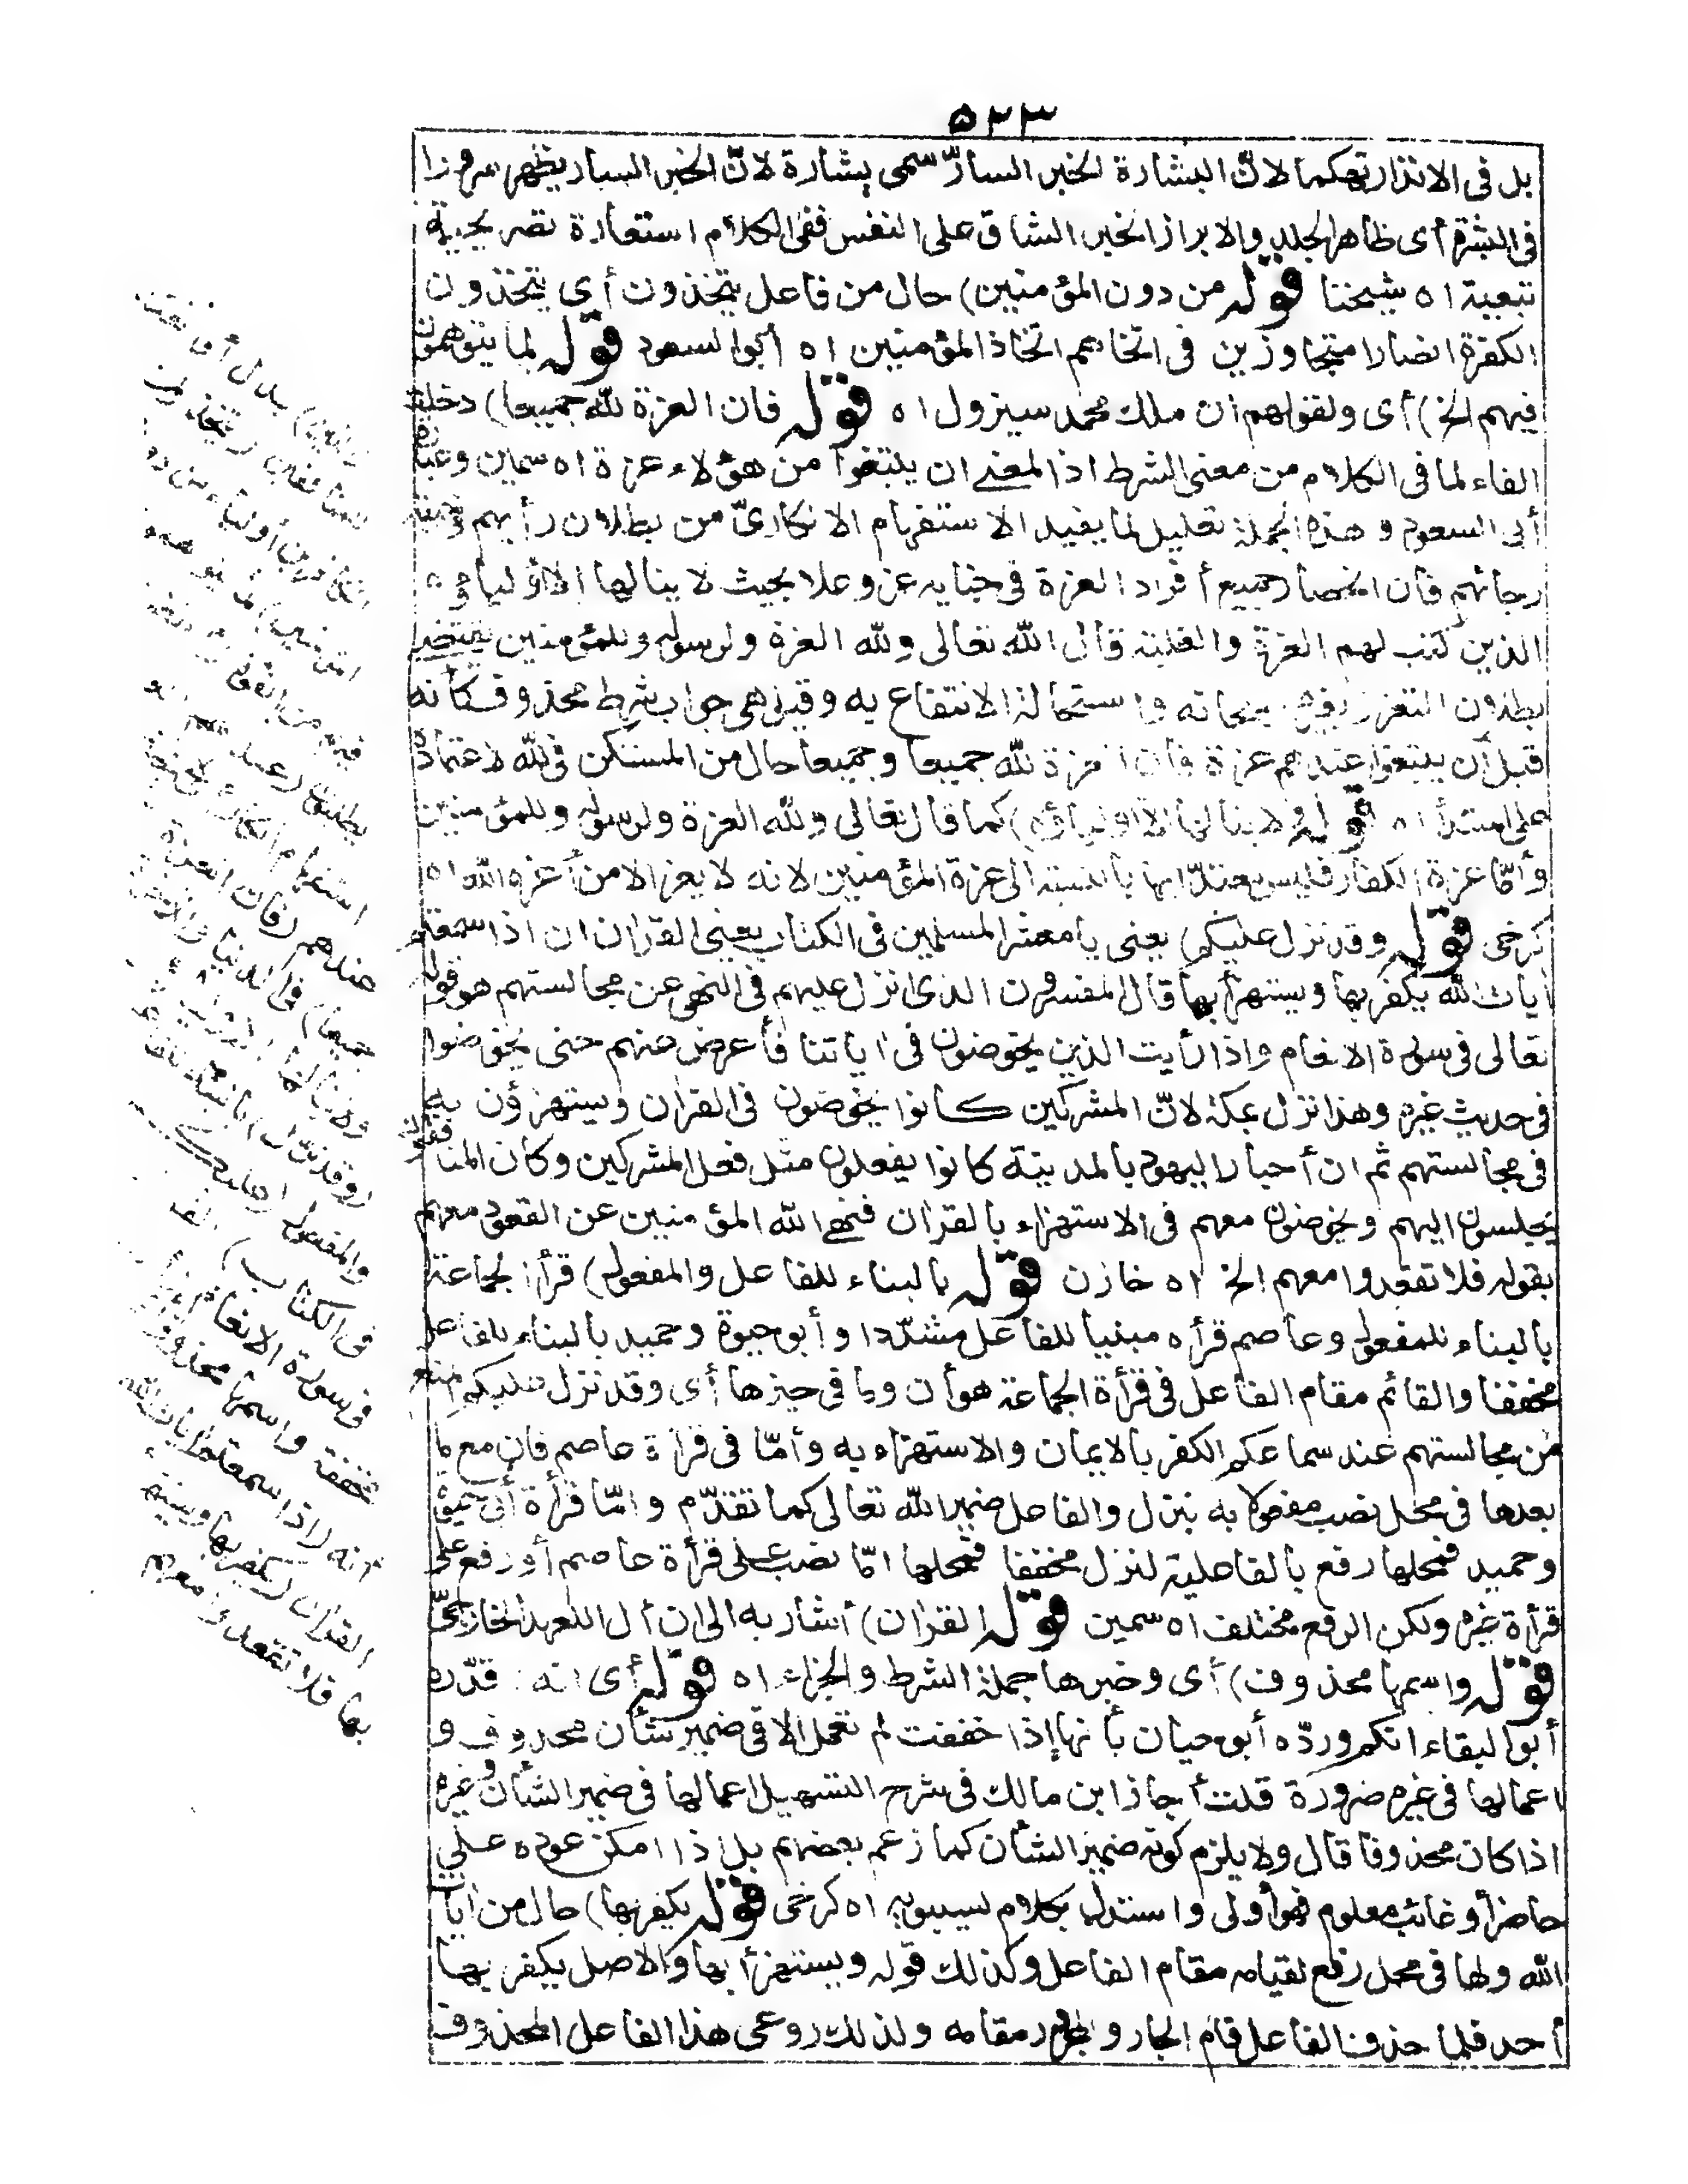 ٥٢٣
بل فى الانذار تهكما لانّ البشارة الخبر السارّ سمى بشارة لانّ الخبر السار يظهر سرورا
فى البشرة أى ظاهر الجلد والابراز الخبر الشاق على النفس ففى الكلام استعارة تصريحية
تبعية اه شيخنا قوله من دون المؤمنين) حال من فاعل يتخذون أى يتخذون
الكفرة انصارا متجاوزين فى اتخاذهم اتخاذ المؤمنين اه أبو السعود قوله لما يتوهمون
فيهم الخ) أى ولقولهم ان ملك محمد سيزول اه قوله فان العزة لله جميعا) دخلت
الفاء لما فى الكلام من معنى الشرط اذ المعنى ان يبتغوا من هؤلاء عزة اه سمين وعبارة
أبى السعود وهذه الجملة تعليل لما يفيد الاستفهام الانكارىّ من بطلان رأيهم وخيبة
رجائهم فان انحصار جميع أفراد العزة فى جنابه عز وعلا بحيث لا ينالها الا أولياؤه
الذين كتب لهم العزة والغلبة قال الله تعالى ولله العزة ولرسوله وللمؤمنين يقتضى
بطلان التعزز بغيره سبحانه واستحالة الانتفاع به وقيل هى جواب شرط محذوف كأنه
قيل ان يبتغوا عندهم عزة فان العزة لله جميعا وجميعا حال من المستكن فى لله لاعتماده
على المبتدأ اه قوله ولا ينالها الا أولياؤه) كما قال تعالى ولله العزة ولرسوله وللمؤمنين
وأمّا عزة الكفار فليس معتدّا بها بالنسبة الى عزة المؤمنين لانه لا يعز الا من أعزه الله اه
كرخى قوله وقد نزل عليكم) يعنى يا معشر المسلمين فى الكتاب يعنى القران ان اذا سمعتم
ايات الله يكفر بها ويستهزأ بها قال المفسرون الذى انزل عليهم فى النهى عن مجالستهم هو قوله
تعالى فى سورة الانعام واذا رأيت الذين يخوضون فى اياتنا فأعرض عنهم حتى يخوضوا
فى حديث غيره وهذا نزل بمكة لانّ المشركين كانوا يخوضون فى القران ويستهزؤن به
فى مجالستهم ثم ان أحبار اليهود بالمدينة كانوا يفعلون مثل فعل المشركين وكان المنافقون
يجلسون اليهم ويخوضون معهم فى الاستهزاء بالقران فنهى الله المؤمنين عن القعود معهم
بقوله فلا تقعدوا معهم الخ اه خازن قوله بالبناء للفاعل والمفعول) قرأ الجماعة
بالبناء للمفعول وعاصم قرأه مبنيا للفاعل مشدّدا وأبو حيوة وحميد بالبناء للفاعل
مخففا والقائم مقام الفاعل فى قرأة الجماعة هو أن وما فى حيزها أى وقد نزل عليكم المنع
من مجالستهم عند سماعكم الكفر بالايمان والاستهزاء به وأمّا فى قرأة عاصم فان مع ما
بعدها فى محل نصب مفعولا به بنزل والفاعل ضمير الله تعالى كما تقدّم وامّا قرأة أبى حيوة
وحميد فمحلها رفع بالفاعلية لنزل مخففا فمحلها امّا نصب على قرأة عاصم أو رفع على
قرأة غيره ولكن الرفع مختلف اه سمين قوله القران) أشار به الى ان أل للعهد الخارجىّ
قوله واسمها محذوف) أى وخبرها جملة الشرط والجزاء اه قوله أى انه) قدّره
أبو البقاء انكم وردّه أبو حيان بأنها إذا خففت لم تعمل الا فى ضمير شأن محذوف و
اعمالها فى غيره ضرورة قلت أجاز ابن مالك فى شرح التسهيل اعمالها فى ضمير الشأن وغيره
اذا كان محذوفا قال ولا يلزم كونه ضمير الشأن كما زعم بعضهم بل اذا امكن عوده على
حاضر أو غائب معلوم فهو أولى واستدل بكلام لسيبويه اه كرخى قوله يكفر بها) حال من ايات
الله وبها فى محل رفع لقيامه مقام الفاعل وكذلك قوله ويستهزأ بها والاصل يكفر بها
أحد فلما حذف الفاعل قام الجار والمجرور مقامه ولذلك روعى هذا الفاعل المحذوف
استفهام انكار
عندهم (فان العزة
جميعا) فى الدنيا والاخرة
ولا ينالها
(وقد نزل) بالبناء للفاعل
والمفعول (عليكم
فى الكتاب)
فى سورة الانعام
مخففة واسمها محذوف أى
أنه (اذا سمعتم ايات الله)
القران (يكفر بها ويستهزأ
بها فلا تقعدوا معهم